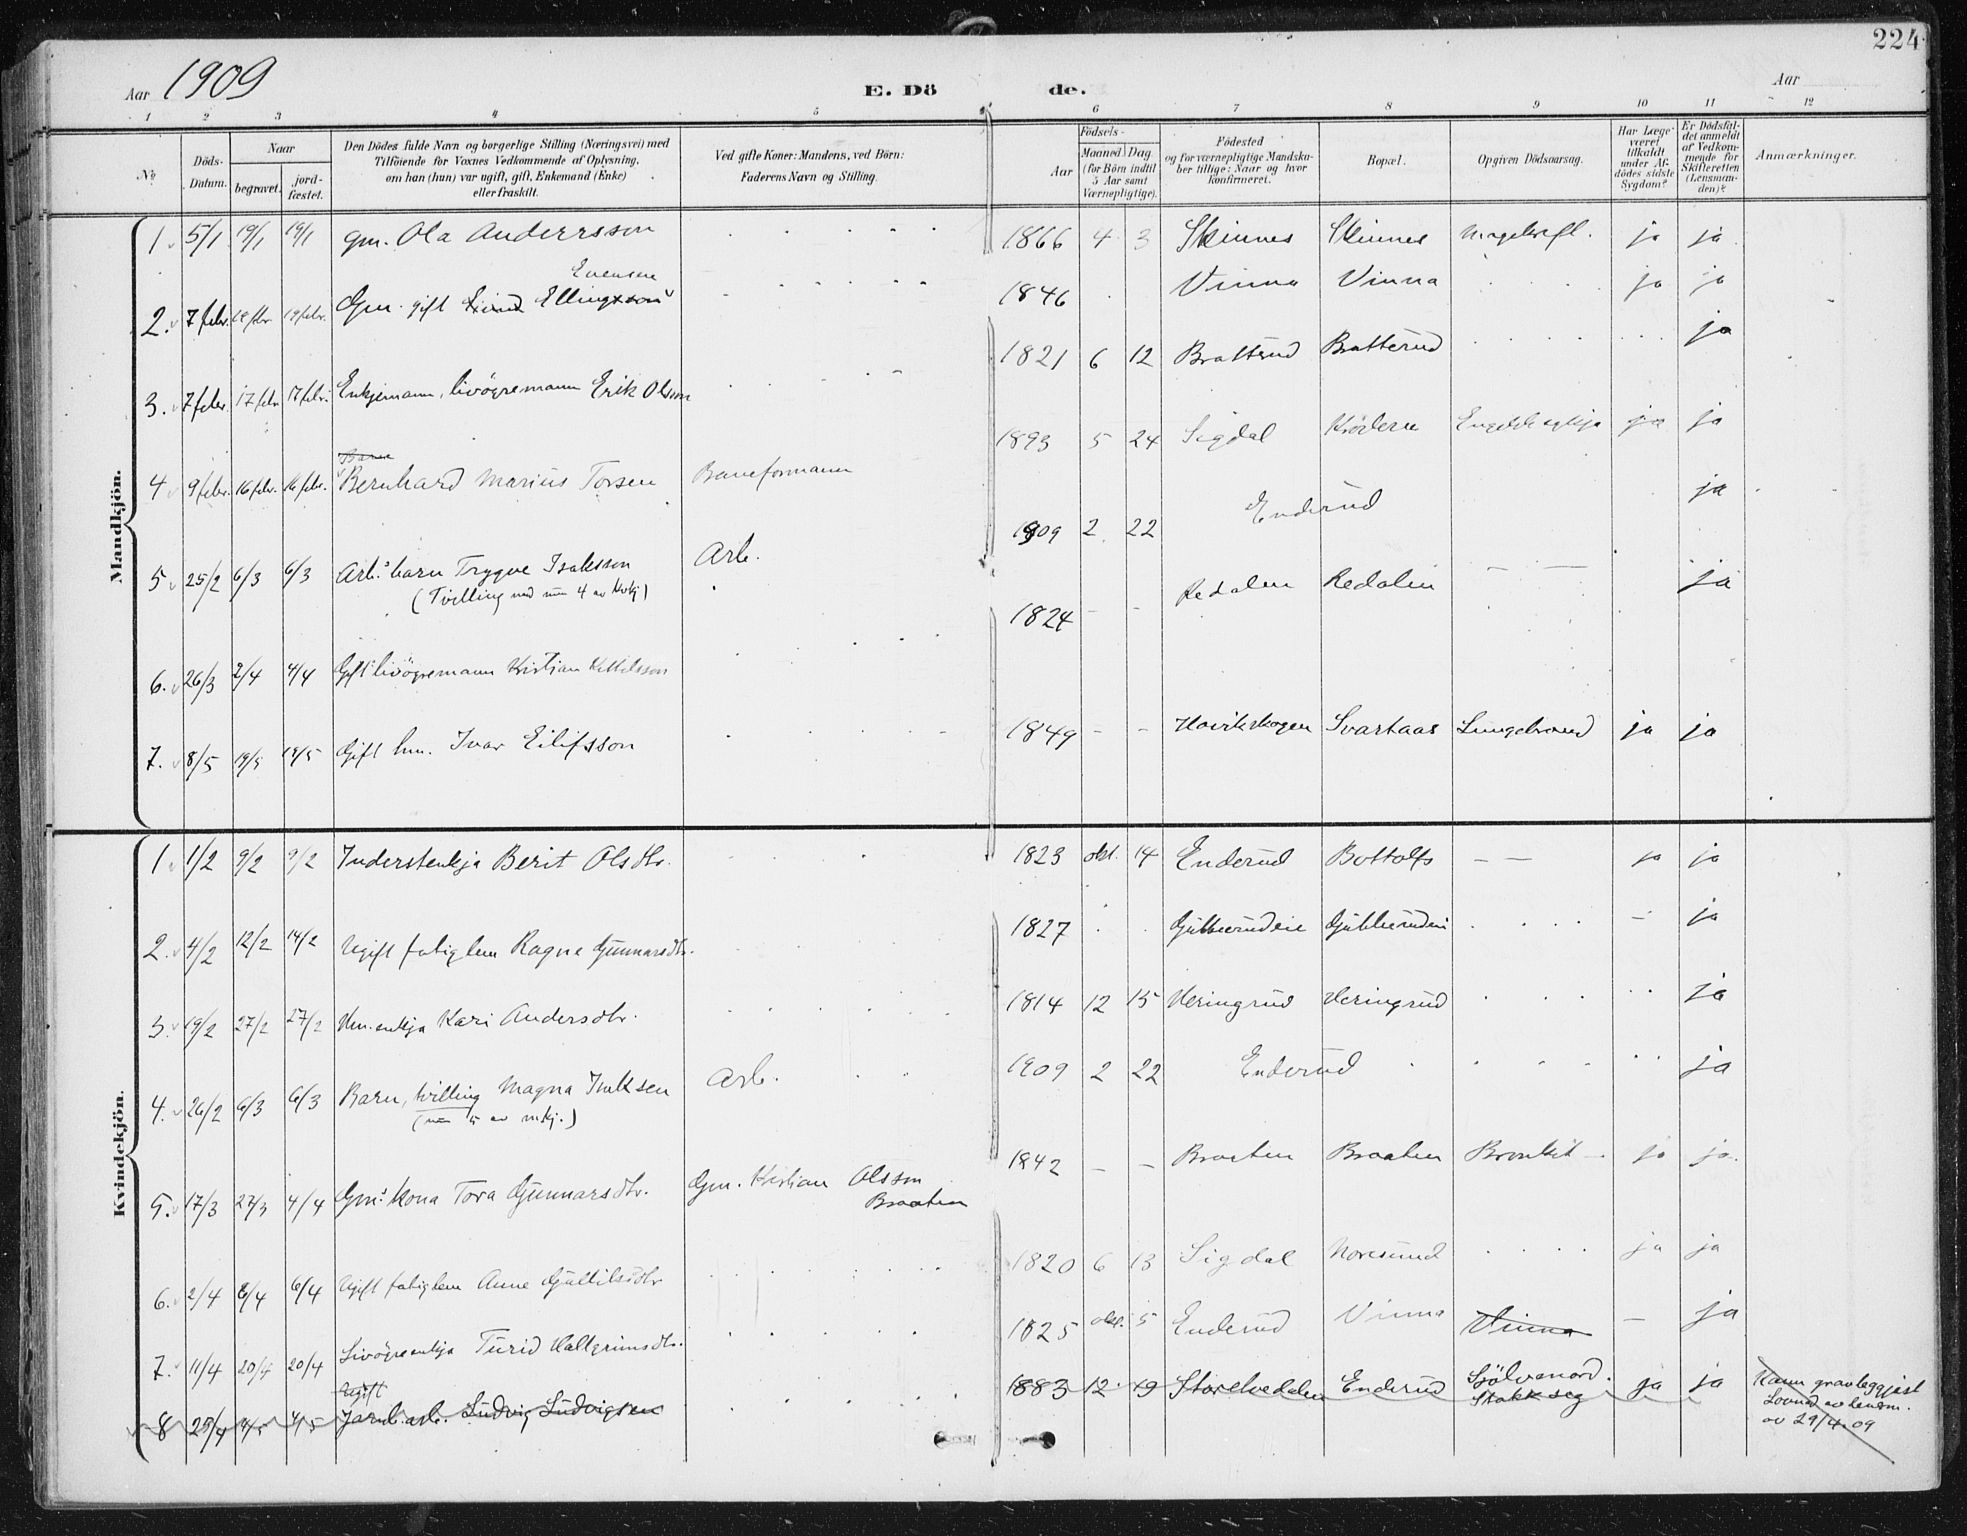 224
Aar 1909 E. Dö de. Aar
1 2 3 4 5 6 7 8 9 10 11 12
№
Döds-Datum.
Naar
begravet.
jord-fæstet.
Den Dödes fulde Navn og borgerlige Stilling (Næringsvei) med
Tilföiende for Voxnes Vedkommende af Oplysning,
om han (hun) var ugift, gift, Enkemand (Enke)
eller fraskilt.
Ved gifte Koner: Mandens, ved Börn:
Faderens Navn og Stilling.
Födsels-
Aar
Maaned Dag
(for Börn indtil
5 Aar samt
Værnepligtige).
Födested
og for værnepligtige Mandska-
ber tillige: Naar og hvor
konfirmeret.
Bopæl.
Opgiven Dödsaarsag.
Har Læge
været
tilkaldt
under Af-
dödes sidste
Sygdom?
Er Dödsfal-
det anmeldt
af Vedkom-
mende for
Skifteretten
(Lensman-
den)?
Anmærkninger.
Mandkjön.
1 5/1 19/1 19/1 gm. Ola Andersson 1866 4 3 Skinnes Skinnes ja ja
Evensen
2. 7 febr. 19 febr. Gm. gift Ellingsson 1846 Vinna Vinna ja ja
3. 7 febr. 17 febr 17 febr. Enkjemann, livøyremann Erik Olsson 1821 6 12 Bratterud Bratterud ja
Barn
4 9 febr. 16 febr. 16 febr. Bernhard Marius Torsen Baneformann 1893 5 24 Sigdal Krödern ja ja
5 25/2 6/3 6/3 Arb.s barn Trygve Isaksson Arb. 1909 2 22 Enderud ja
(Tvilling med num 4 av kvkj)
6. 26/3 2/4 4/4 Gift livøyremann Kristian Kittilsson 1824 - - Redalen Redalen ja
7. 8/5 19/5 19/5 Gift hm. Ivar Eilifsson 1849 - - Hovikskogen Svartaas Lungebrand ja ja
Kvindekjön.
1 1/2 9/2 9/2 Inderstenkja Berit Olsdtr. 1823 okt. 14 Enderud Bottolfs — — ja ja
2. 4/2 12/2 14/2 Ugift fatiglem Ragne Gunnarsdtr. 1827 - ja
3. 19/2 27/2 27/2 Hm.enkja Kari Andersdtr. 1814 12 15 Heringrud Heringrud ja
4. 26/2 6/3 6/3 Barn, tvilling Magna Isaksen Arb. 1909 2 22 Enderud ja
(num 5 av mkj.)
5. 17/3 27/3 4/4 Gm.s kona Tora Gunnarsdtr. Gm. Kristian Olsson 1842 - - Braaten Braaten Bronkit ja ja.
Braaten
6. 2/4 6/4 Ugift fatiglem Anne 1820 6 13 Sigdal Noresund ja ja
7. 11/4 20/4 20/4 Livøyreenkja Turid Hallgrimsdtr. 1825 okt. 5 Enderud Vinna Vinna - ja
Ugift
8 25/4 4/5 4/5 Jarnb.arb. Ludvig Ludvigsen 1883 12 19 Storelvedalen Enderud Sjölvmord. ja ja Kann gravleggjast
Stakk seg Lovnad av lensm.
av 29/4 09